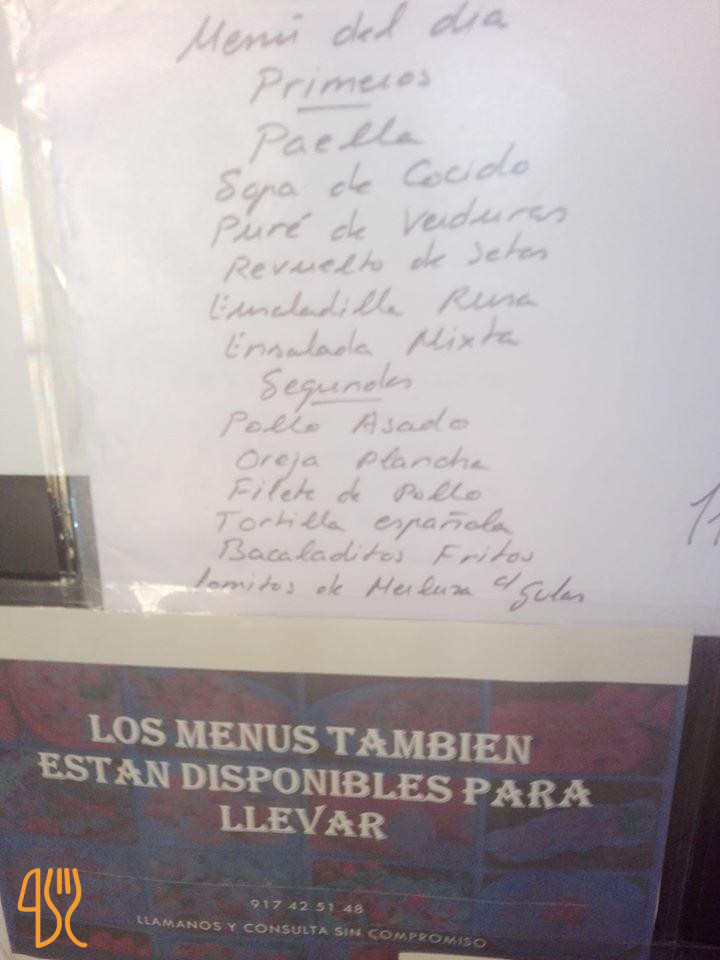 Menú del dia
Primeros
Paella
Sopa de Cocido
Puré de Verduras
Revuelto de setas
Ensaladilla Rusa
Ensalada Mixta
Segundos
Pollo Asado
Oreja Plancha
Filete de Pollo
Tortilla española
Bacaladitos Fritos
lomitos de Merluza c/ gulas
LOS MENUS TAMBIEN
ESTAN DISPONIBLES PARA
LLEVAR
917 42 51 48
LLAMANOS Y CONSULTA SIN COMPROMISO